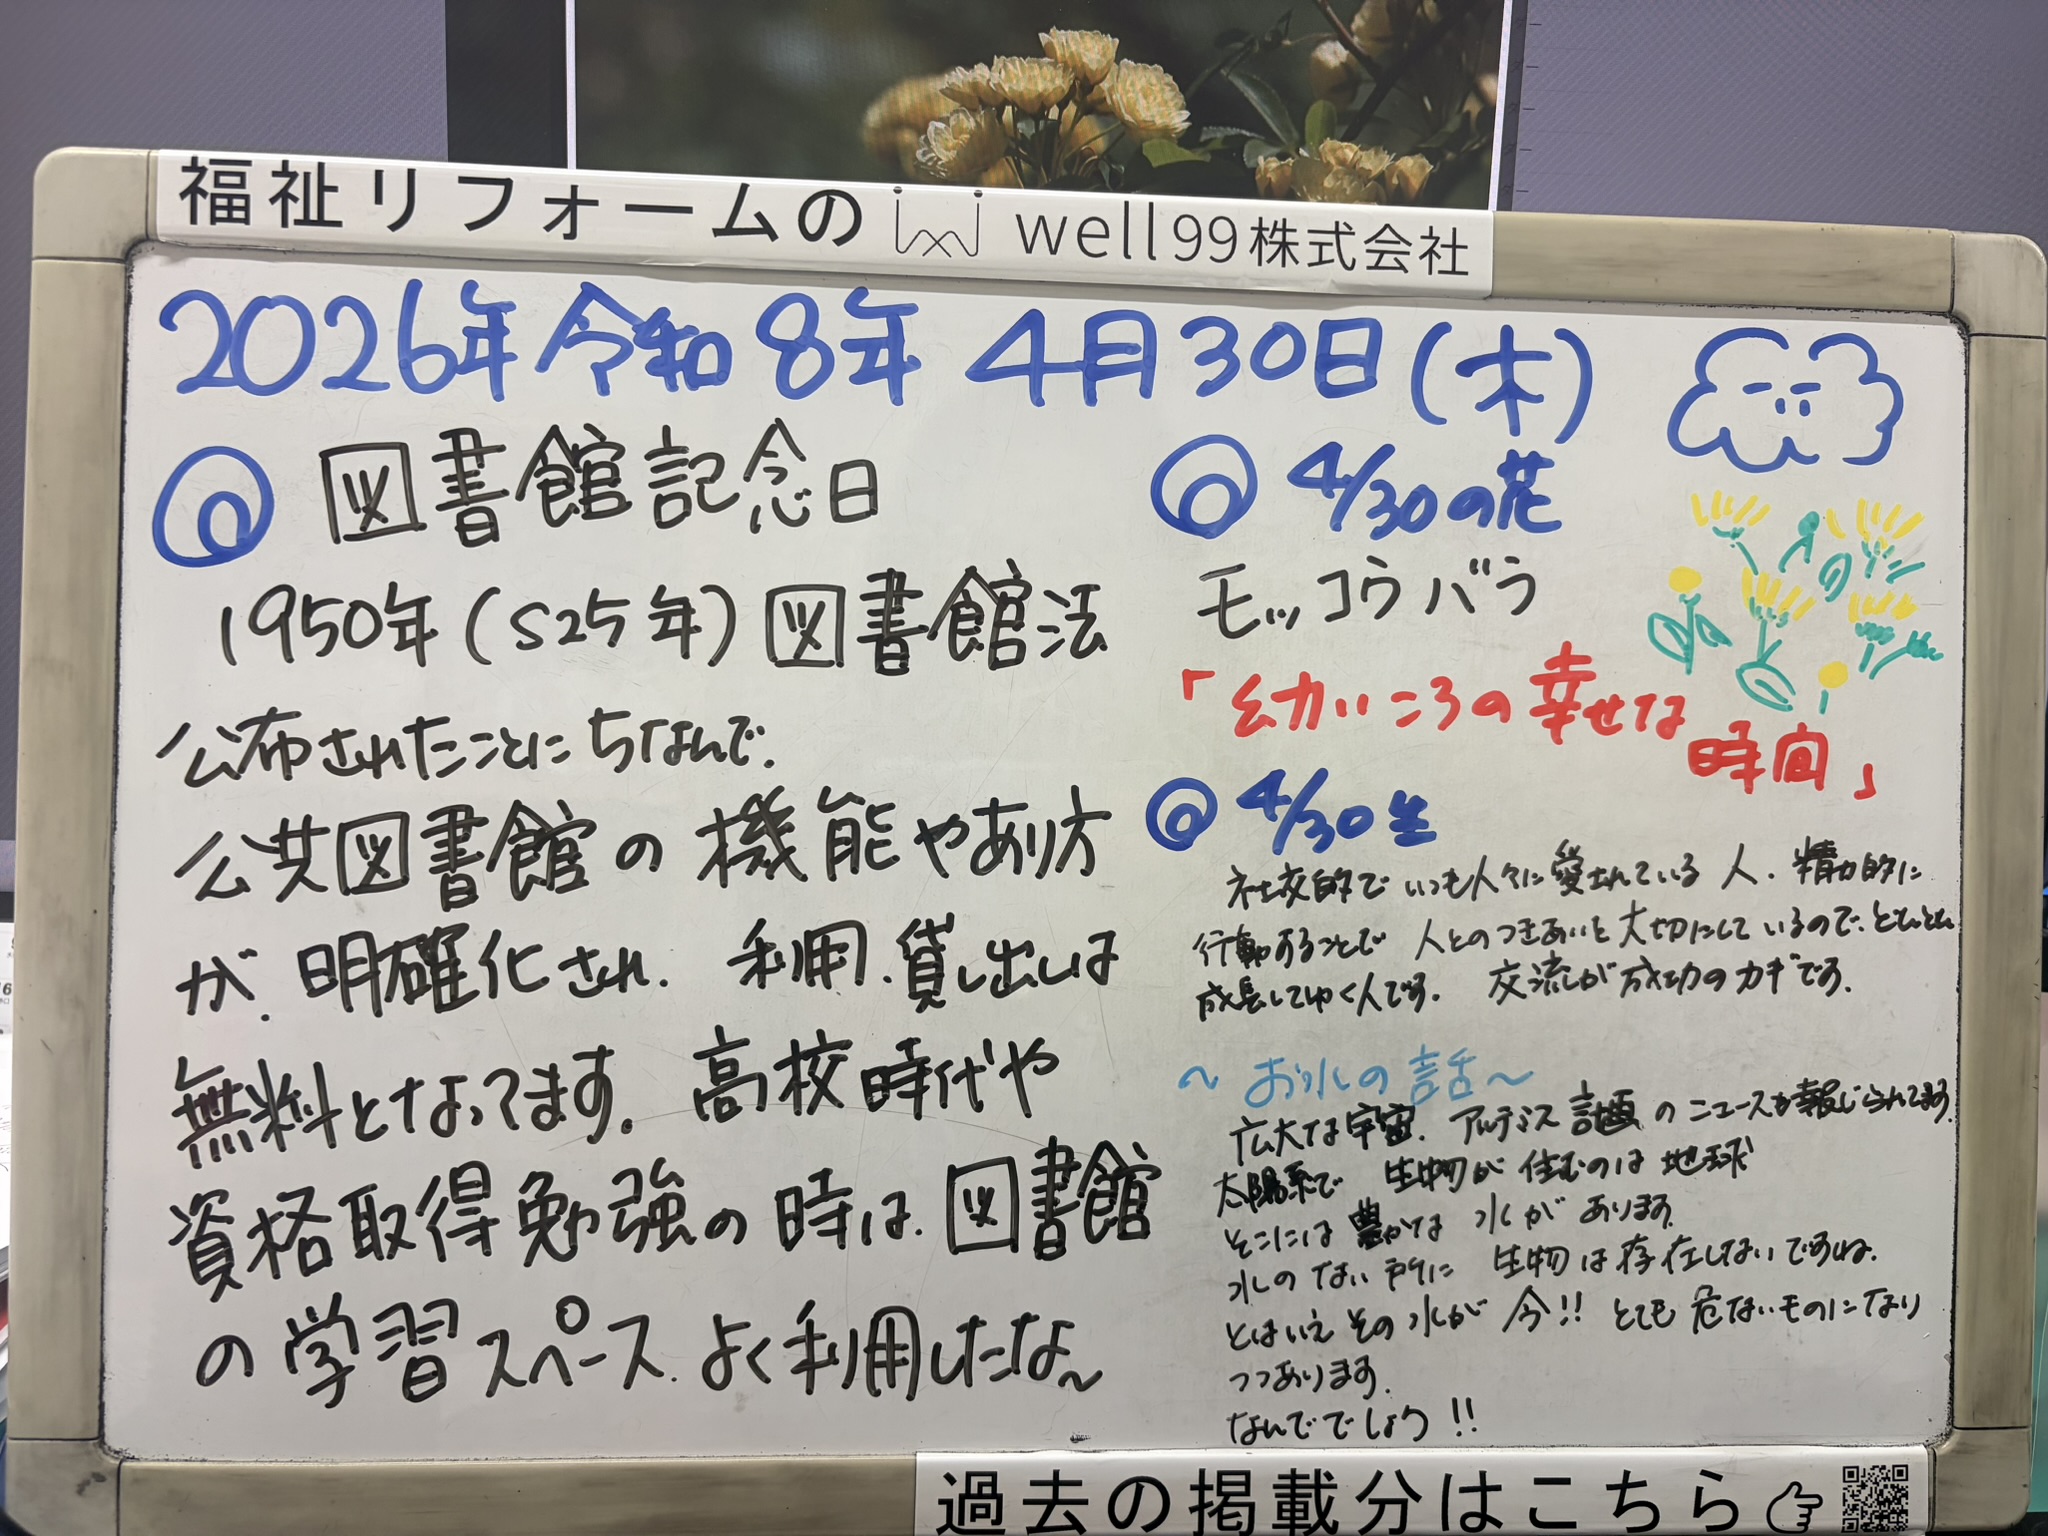 福祉リフォームの well99株式会社
2026年令和8年 4月30日(木)
図書館記念日
1950年(S25年)図書館法
公布されたことにちなんで、
公共図書館の機能やあり方
が、明確化され、利用、貸し出しは
無料となってます。高校時代や
資格取得勉強の時は、図書館
の学習スペース、よく利用したな〜
4/30の花
モッコウバラ
「幼いころの幸せな
時間」
4/30生
社交的でいつも人々に愛されている人、精力的に
行動することで 人とのつきあいを大切にしているので、どんどん
成長してゆく人です。 交流が成功のカギです。
〜お水の話〜
広大な宇宙、アルテミス計画のニュースが報じられてます。
太陽系で 生物が住むのは地球
そこには豊かな水があります。
水のない所に 生物は存在しないですね。
とはいえその水が今!! とても危ないものになり
つつあります。
なんででしょう!!
過去の掲載分はこちら